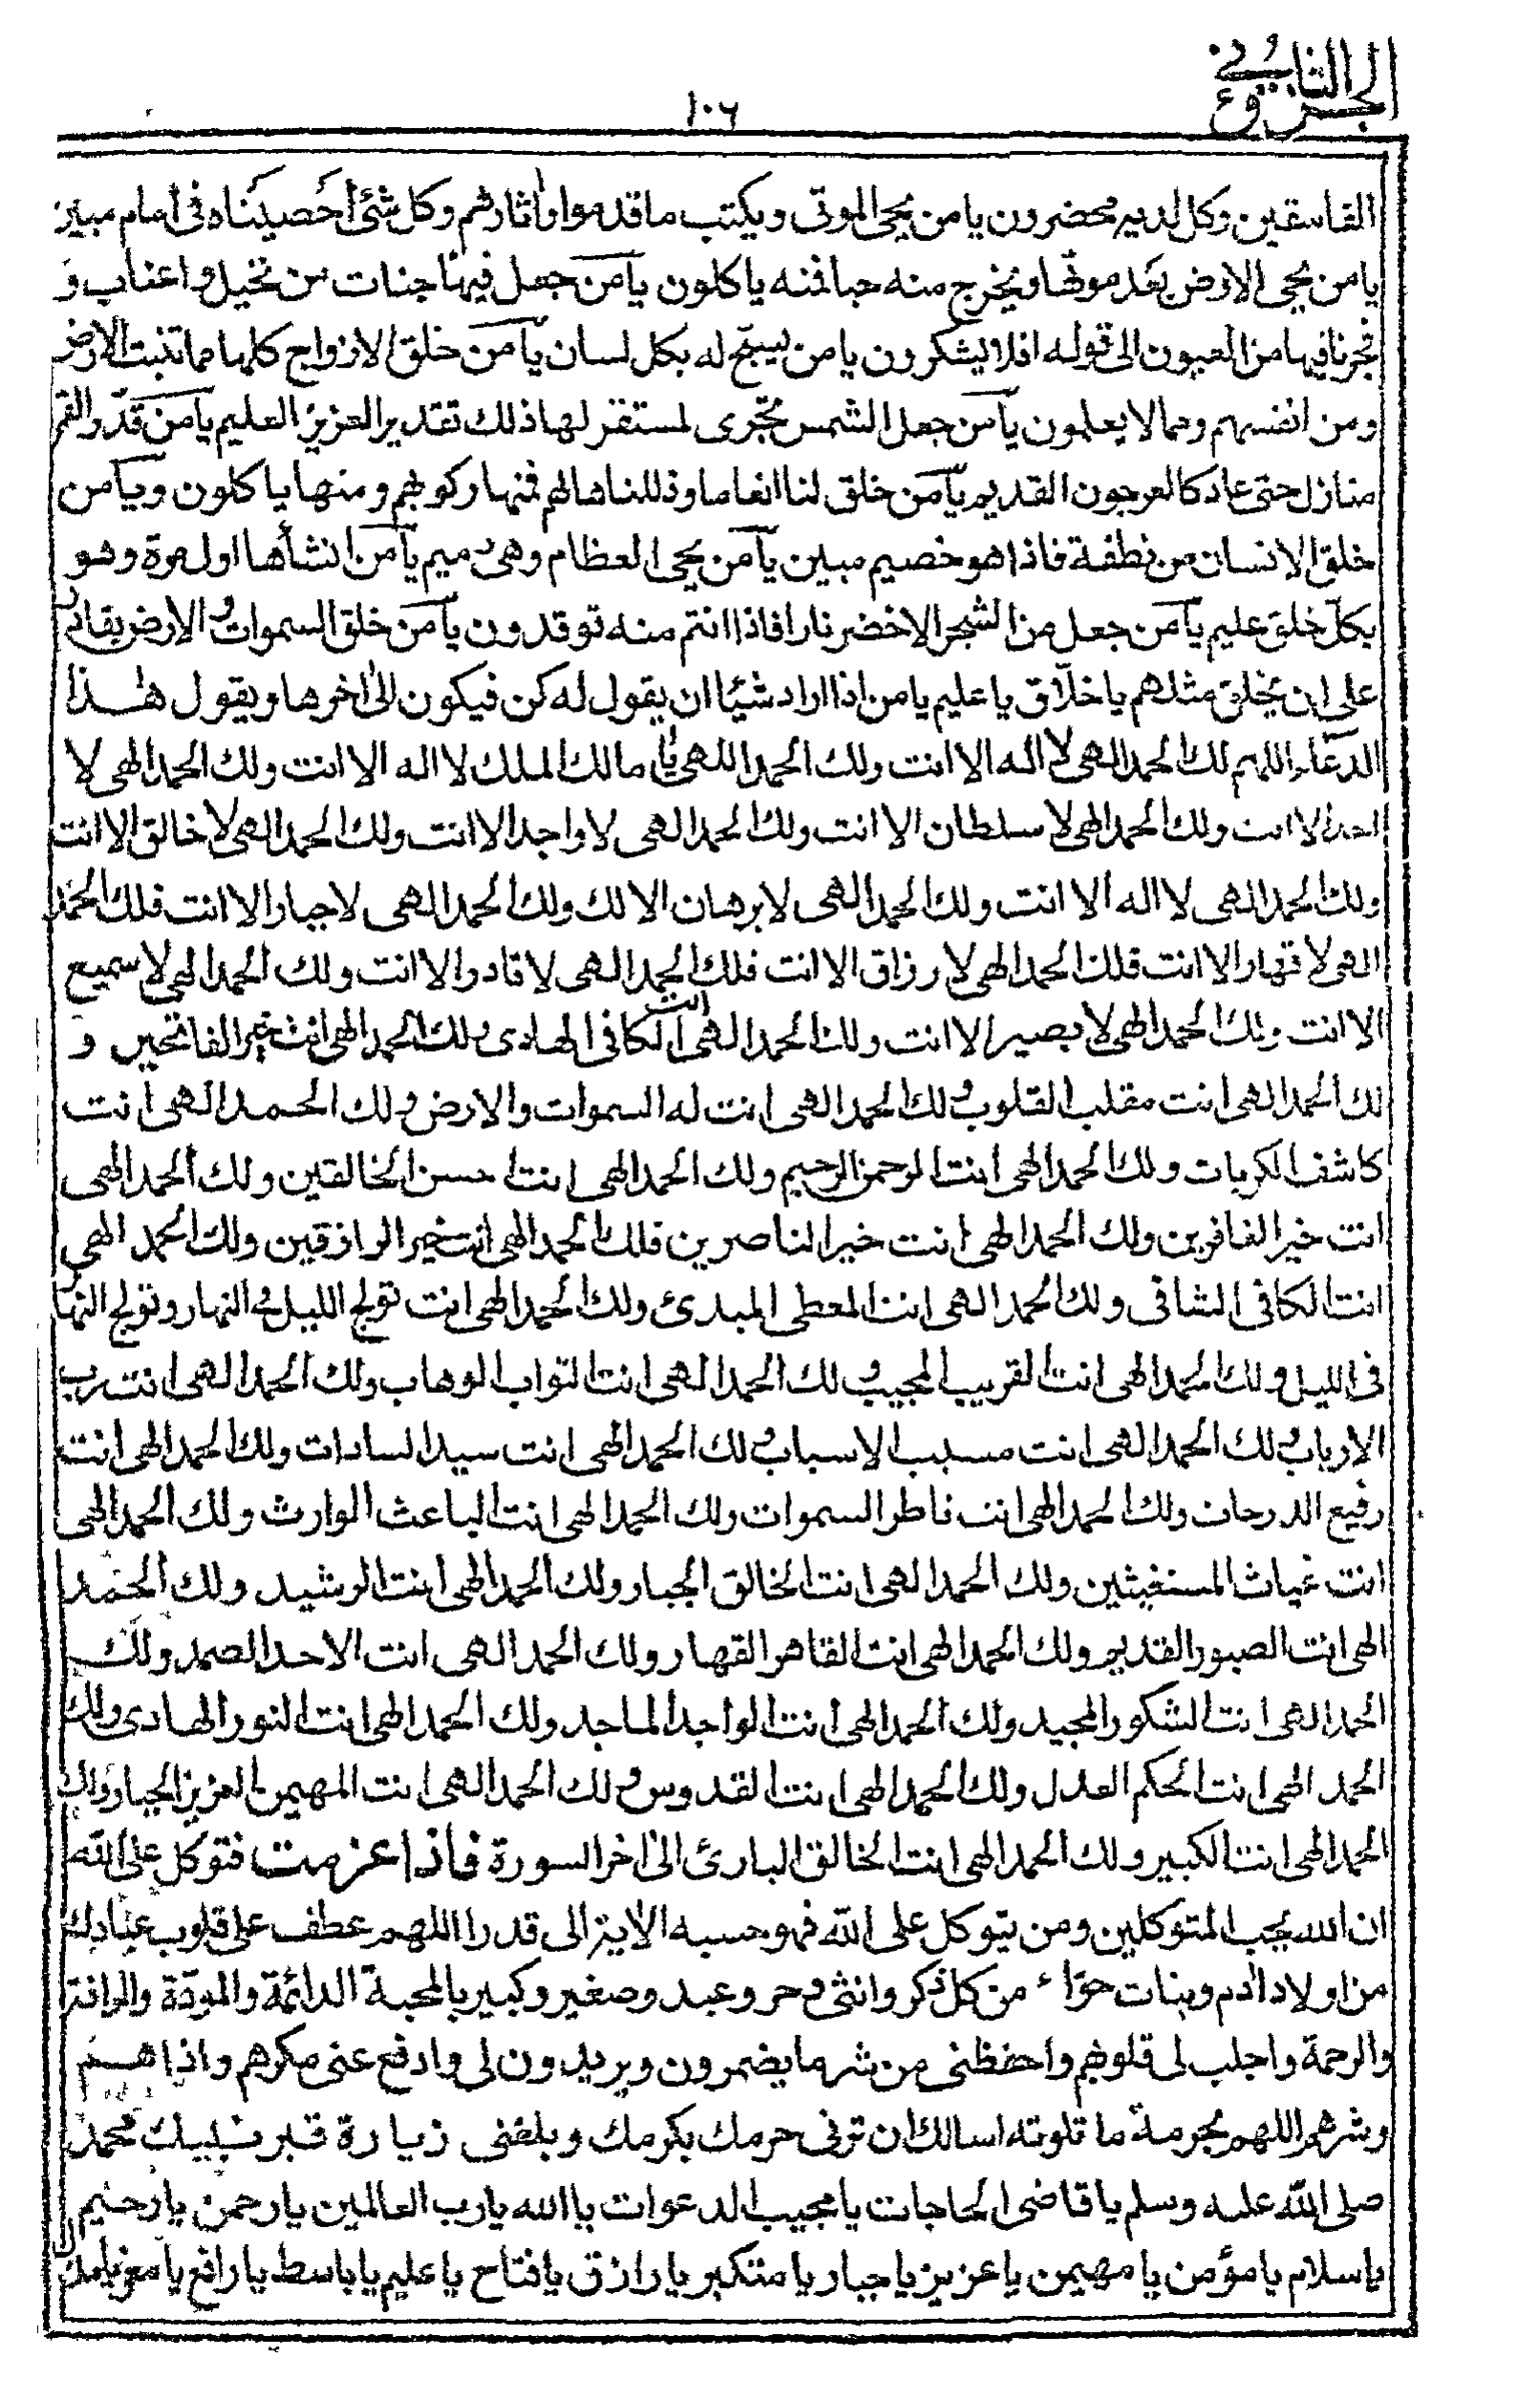 الجزء الثاني
١٠٦
الفاسقين وكل لديه محضرون يا من يحيى الموتى ويكتب ما قدموا واثارهم وكل شئ أحصيناه فى امام مبين
يا من يحيى الارض بعد موتها ويخرج منه حبا فمنه ياكلون يا من جعل فيها جنات من نخيل واعناب و
فجرنا فيها من العيون الى قوله افلا يشكرون يا من يسبح له بكل لسان يا من خلق الازواج كلها مما تنبت الارض
ومن انفسهم ومما لا يعلمون يا من جعل الشمس تجرى لمستقر لها ذلك تقدير العزيز العليم يا من قدر القمر
منازل حتى عاد كالعرجون القديم يا من خلق لنا انعاما وذللناها لهم فمنها ركوبهم ومنها ياكلون ويا من
خلق الانسان من نطفة فاذا هو خصيم مبين يا من يحيى العظام وهى رميم يا من انشأها اول مرة وهو
بكل خلق عليم يا من جعل من الشجر الاخضر نارا فاذا انتم منه توقدون يا من خلق السموات والارض بقادر
على ان يخلق مثلهم يا خلاق يا عليم يا من اذا اراد شيئا ان يقول له كن فيكون الى اخرها ويقول هذا
الدعاء اللهم لك الحمد الهى لا اله الا انت ولك الحمد اللهى يا مالك الملك لا اله الا انت ولك الحمد الهى لا
احد الا انت ولك الحمد الهى لا سلطان الا انت ولك الحمد الهى لا واجد الا انت ولك الحمد الهى لا خالق الا انت
ولك الحمد الهى لا اله الا انت ولك الحمد الهى لا برهان الا لك ولك الحمد الهى لا جبار الا انت فلك الحمد
الهى لا قهار الا انت فلك الحمد الهى لا رزاق الا انت فلك الحمد الهى لا قادر الا انت ولك الحمد الهى لا سميع
الا انت ولك الحمد الهى لا بصير الا انت ولك الحمد الهى انت الكافى الهادى ولك الحمد الهى انت خير الفاتحين و
لك الحمد الهى انت مقلب القلوب ولك الحمد الهى انت له السموات والارض ولك الحمد الهى انت
كاشف الكربات ولك الحمد الهى انت الرحمن الرحيم ولك الحمد الهى انت احسن الخالقين ولك الحمد الهى
انت خير الغافرين ولك الحمد الهى انت خير الناصرين فلك الحمد الهى انت خير الرازقين ولك الحمد الهى
انت الكافى الشافى ولك الحمد الهى انت المعطى المبدئ ولك الحمد الهى انت تولج الليل فى النهار وتولج النهار
فى الليل ولك الحمد الهى انت القريب المجيب ولك الحمد الهى انت التواب الوهاب ولك الحمد الهى انت رب
الارباب ولك الحمد الهى انت مسبب الاسباب ولك الحمد الهى انت سيد السادات ولك الحمد الهى انت
رفيع الدرجات ولك الحمد الهى انت فاطر السموات ولك الحمد الهى انت الباعث الوارث ولك الحمد الهى
انت غياث المستغيثين ولك الحمد الهى انت الخالق الجبار ولك الحمد الهى انت الرشيد ولك الحمد
الهى انت الصبور القديم ولك الحمد الهى انت القاهر القهار ولك الحمد الهى انت الاحد الصمد ولك
الحمد الهى انت الشكور المجيد ولك الحمد الهى انت الواجد الماجد ولك الحمد الهى انت النور الهادى ولك
الحمد الهى انت الحكم العدل ولك الحمد الهى انت القدوس ولك الحمد الهى انت المهيمن العزيز الجبار ولك
الحمد الهى انت الكبير ولك الحمد الهى انت الخالق البارئ الى اخر السورة فاذا عزمت فتوكل على الله
ان الله يحب المتوكلين ومن يتوكل على الله فهو حسبه الاية الى قدرا اللهم عطف على قلوب عبادك
من اولاد ادم وبنات حواء من كل ذكر وانثى وحر وعبد وصغير وكبير بالمحبة الدائمة والمودة والرافة
والرحمة واجلب لى قلوبهم واحفظنى من شر ما يضمرون ويريدون لى وادفع عنى مكرهم واذاهم
وشرهم اللهم بحرمة ما تلوته اسالك ان ترنى حرمك بكرمك وبلغنى زيارة قبر نبيك محمد
صلى الله عليه وسلم يا قاضى الحاجات يا مجيب الدعوات يا الله يا رب العالمين يا رحمن يا رحيم
يا سلام يا مؤمن يا مهيمن يا عزيز يا جبار يا متكبر يا رازق يا فتاح يا عليم يا باسط يا رافع يا معز يا مذل